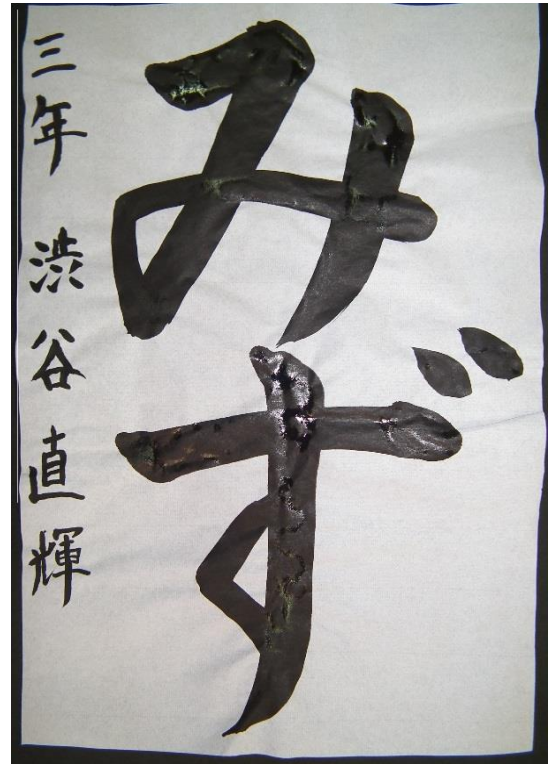 みず
三年 渋谷直輝